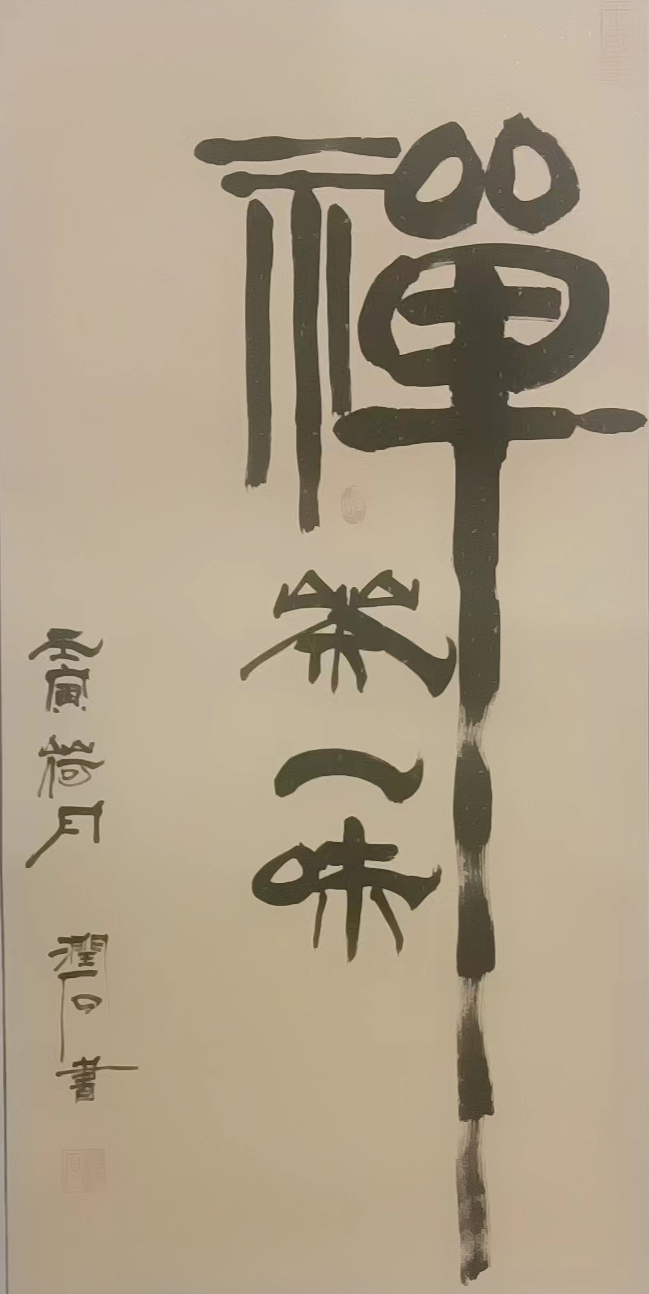 禪茶一味
壬寅荷月 潤石書